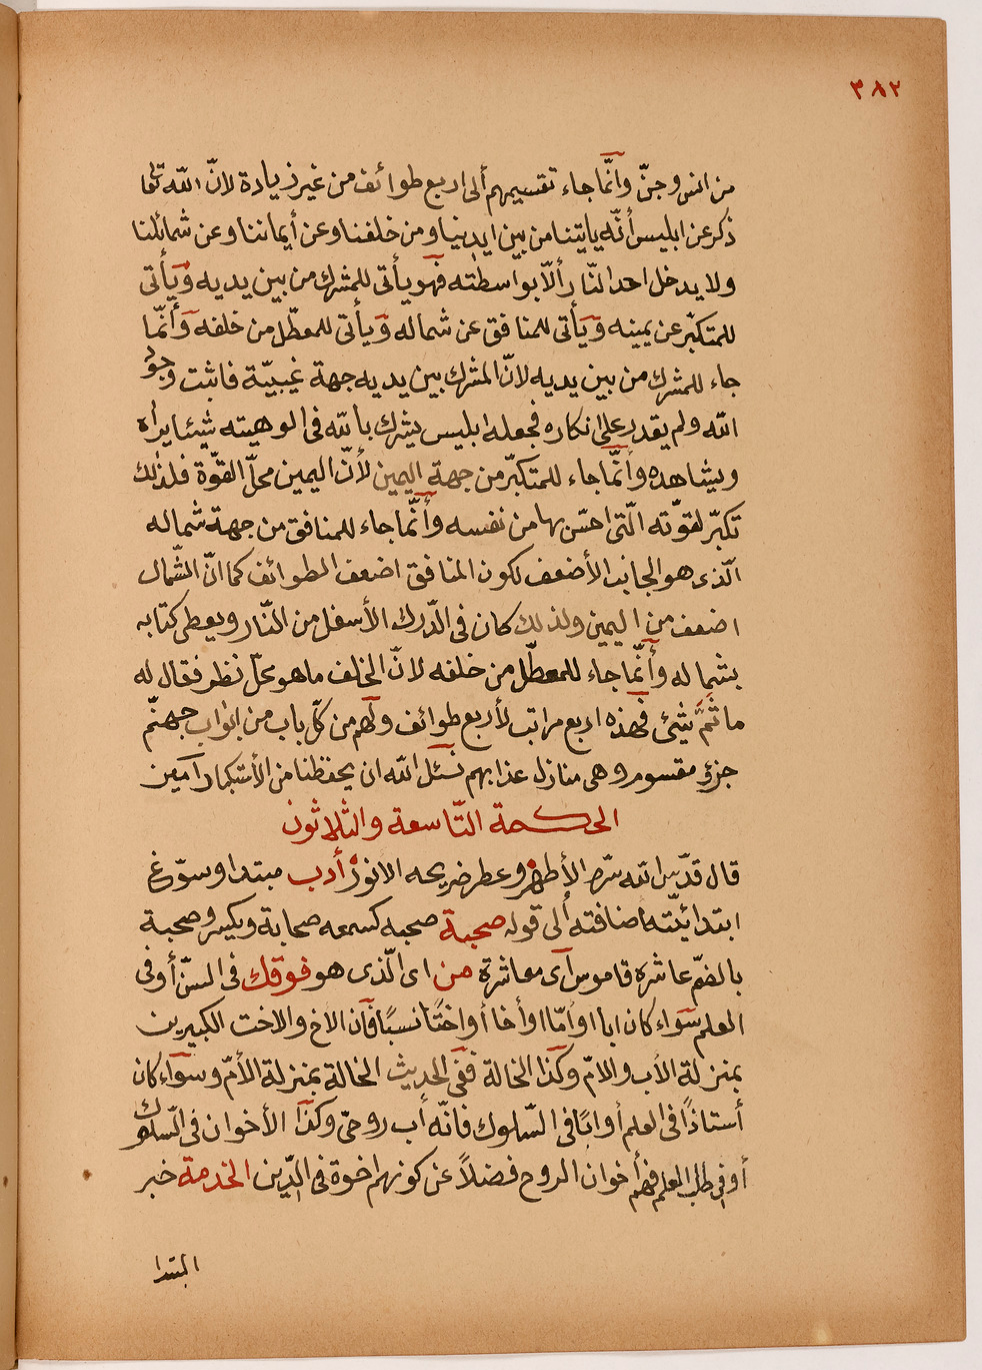 ٣٨٢
من انس وجنّ وانّما جاء تقسيمهم ألى اربع طوائف من غير زيادة لانّ الله تعا
ذكر عن ابليس أنّه ياتينا من بين ايدينا ومن خلفنا وعن أيماننا وعن شمائلنا
ولا يدخل احد النّار ألّا بواسطته فهو يأتى للمشرك من بين يديه ويأتى
للمتكبّر عن يمينه ويأتى للمنافق عن شماله ويأتى للمعطّل من خلفه وأنّما
جاء للمشرك من بين يديه لانّ المشرك بين يديه جهة غيبيّة فاثبت وجود
الله ولم يقدر على انكاره فجعله ابليس يشرك بالله فى الوهيته شيئا يراه
ويشاهده وانّما جاء للمتكبّر من جهة اليمين لأنّ اليمين محلّ القوّة فلذلك
تكبّر لقوّته الّتى احسّ بها من نفسه وأنّما جاء للمنافق من جهة شماله
الّذى هو الجانب الأضعف لكون المنافق اضعف الطوائف كما انّ الشّمال
اضعف من اليمين ولذلك كان فى الدّرك الأسفل من النّار ويعطى كتابه
بشماله وأنّما جاء للمعطّل من خلفه لانّ الخلف ما هو محلّ نظر فقال له
ما ثَمَّ شئ فهذه اربع مراتب لأربع طوائف ولهم من كلّ باب من ابواب جهنّم
جزؤ مقسوم وهى منازل عذابهم نسئل الله ان يحفظنا من الأستكبار آمين
الحكمة التّاسعة والثلاثون
قال قدّس الله سرّه الأطهر وعطر ضريحه الانور أدب مبتدا وسوّغ
ابتدائيّته اضافته ألى قوله صحبة صحبه كسمعه صحابة ويكسر وصحبة
بالضمّ عاشره قاموس أى معاشرة من اى الّذى هو فوقك فى السنّ أو فى
العلم سواء كان ابا او أمّا او أخا أو اختًا نسبًا فأن الاخ والاخت الكبيرين
بمنزلة الأب والامّ وكذا الخالة ففى الحديث الخالة بمنزلة الأمّ وسواء كان
أستاذًا فى العلم أو ابًا فى السّلوك فانّه أب روحىّ وكذا الأخوان فى السّلوك
أو فى طلب العلم فهم أخوان الروح فضلاً عن كونهم اخوة فى الدّين الخدمة خبر
المبتدا